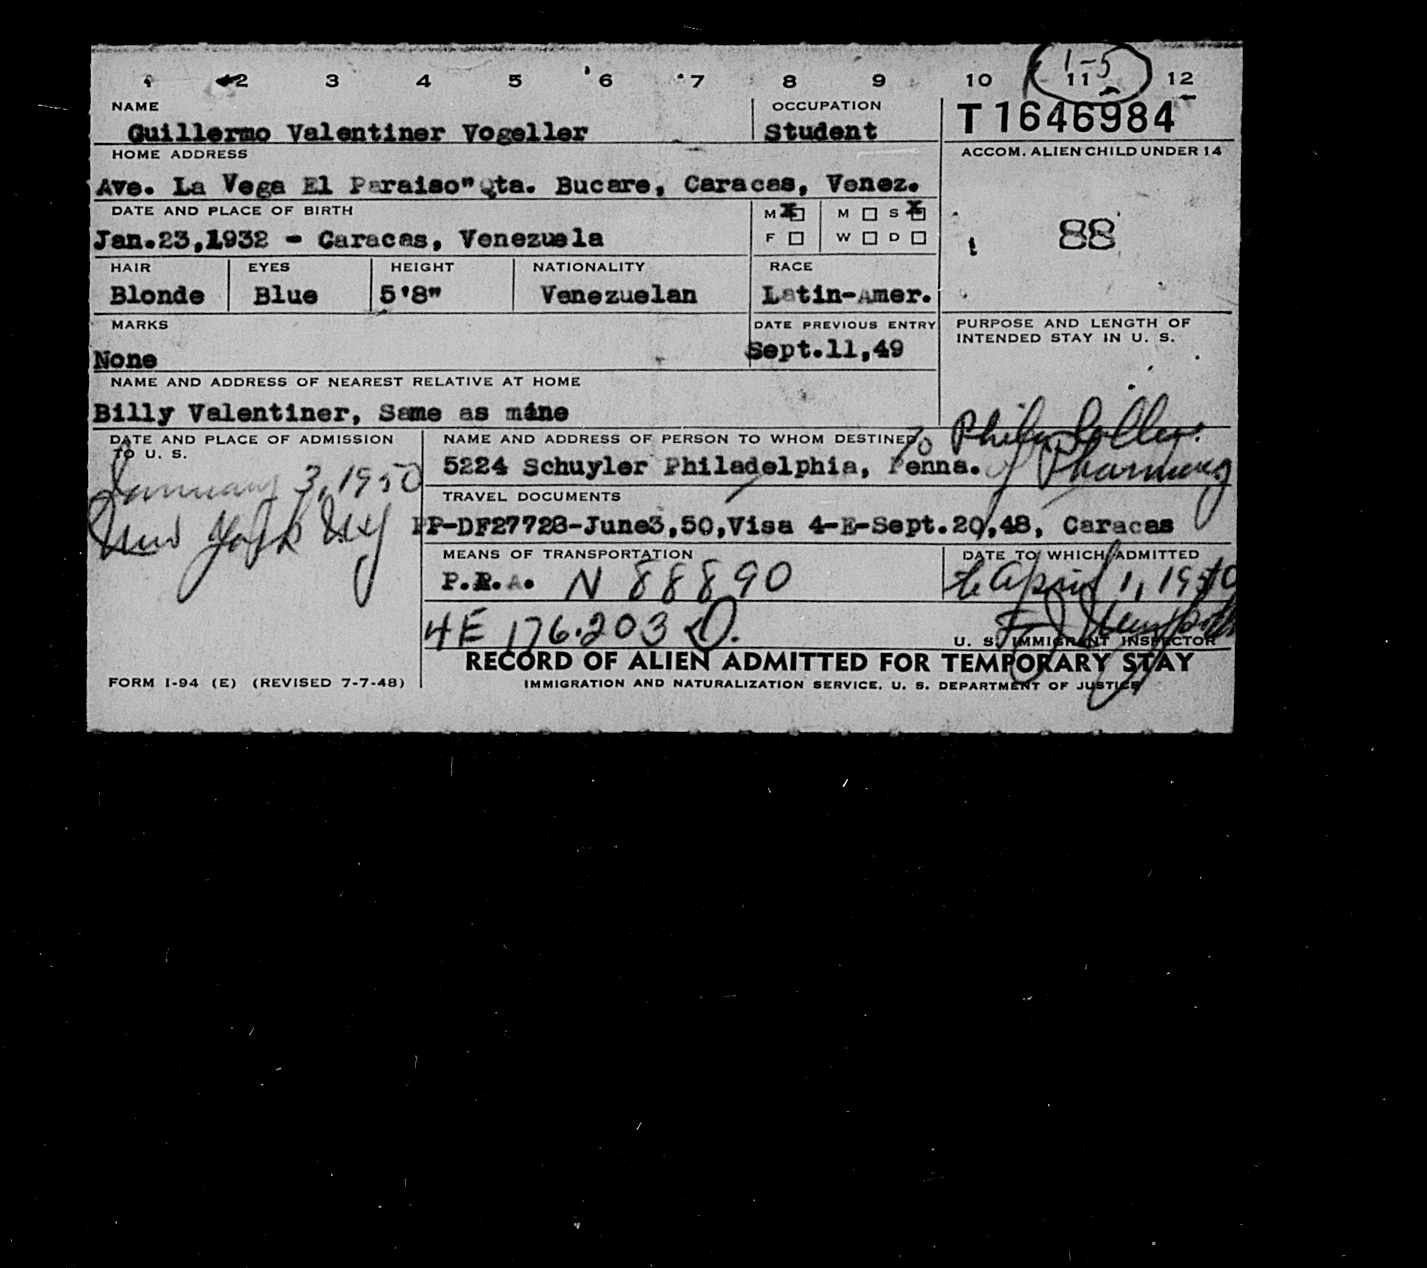 1 2 3 4 5 6 7 8 9 10 11 12
1-5
NAME
Guillermo Valentiner Vogeller
OCCUPATION
Student
T 1646984
HOME ADDRESS
Ave. La Vega El Paraiso" Qta. Bucare, Caracas, Venez.
ACCOM. ALIEN CHILD UNDER 14
88
DATE AND PLACE OF BIRTH
Jan.23,1932 - Caracas, Venezuela
M X M S X
F W D
HAIR
Blonde
EYES
Blue
HEIGHT
5'8"
NATIONALITY
Venezuelan
RACE
Latin-Amer.
MARKS
None
DATE PREVIOUS ENTRY
Sept.11,49
PURPOSE AND LENGTH OF
INTENDED STAY IN U. S.
To Phila College
of Pharmacy
NAME AND ADDRESS OF NEAREST RELATIVE AT HOME
Billy Valentiner, Same as mine
DATE AND PLACE OF ADMISSION
TO U. S.
January 3, 1950
New York NY
NAME AND ADDRESS OF PERSON TO WHOM DESTINED
5224 Schuyler Philadelphia, Penna.
TRAVEL DOCUMENTS
PP-DF27728-June3,50,Visa 4-E-Sept.20,48, Caracas
MEANS OF TRANSPORTATION
P.R.A. N 88890
DATE TO WHICH ADMITTED
to April 1, 1950
4E 176.203 D.
U. S. IMMIGRANT INSPECTOR
RECORD OF ALIEN ADMITTED FOR TEMPORARY STAY
FORM I-94 (E) (REVISED 7-7-48)
IMMIGRATION AND NATURALIZATION SERVICE, U. S. DEPARTMENT OF JUSTICE